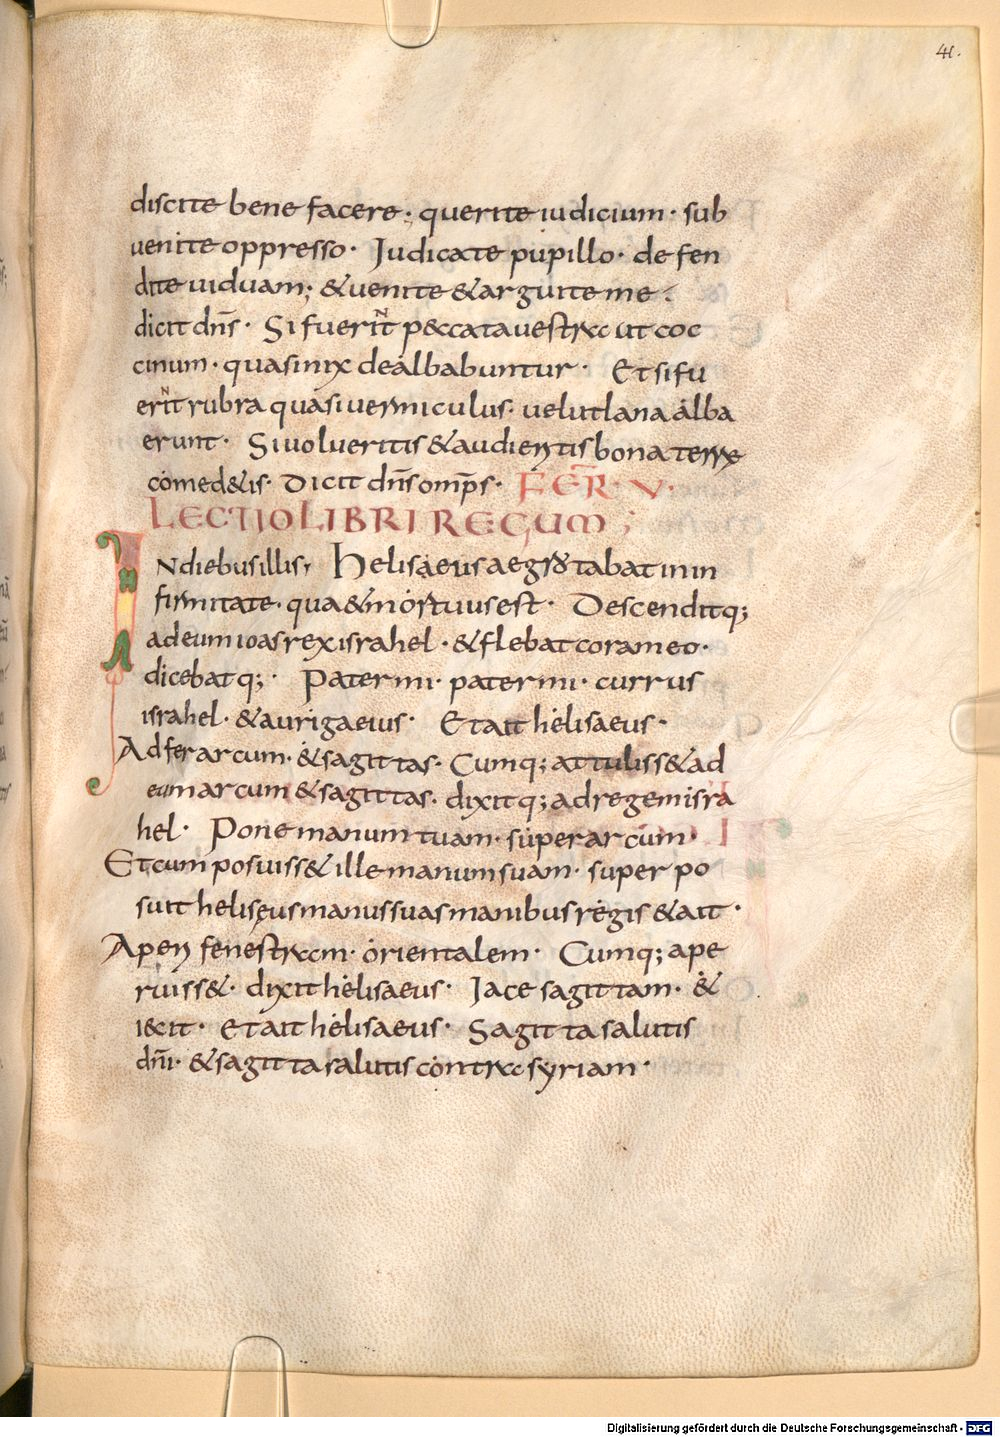 41.
discite bene facere · querite iudicium · sub
uenite oppresso · Judicate pupillo · defen
dite uiduam ; & uenite & arguite me :
dicit dn̄s · Si fueriN̄t peccata uestra ut coc
cinum · quasi nix dealbabuntur · Et si fu
eriN̄t rubra quasi uermiculus · uelut lana alba
erunt · Si uolueritis & audieritis bona terre
comed&is · Dicit dn̄s omp̄s · FER̄ · V ·
LECTIO LIBRI REGUM ;
IN diebus illis · Helisaeus aegrotabat in in
firmitate · qua & mortuus est · Descenditq;
ad eum ioas rex israhel · & flebat coram eo ·
dicebatq; · Pater mi · pater mi · currus
israhel · & auriga eius · Et ait helisaeus ·
Adfer arcum · & sagittas · Cumq; attuliss& ad
eum arcum & sagittas · dixitq; ad regem isra
hel · Pone manum tuam · super arcum ·
Et cum posuiss& ille manum suam · super po
suit heliseus manus suas manibus regis & ait ·
Aperi fenestram · orientalem · Cumq; ape
ruiss& · dixit helisaeus · Jace sagittam · &
iecit · Et ait helisaeus · Sagitta salutis
dn̄i · & sagitta salutis contra syriam ·
Digitalisierung gefördert durch die Deutsche Forschungsgemeinschaft - DFG